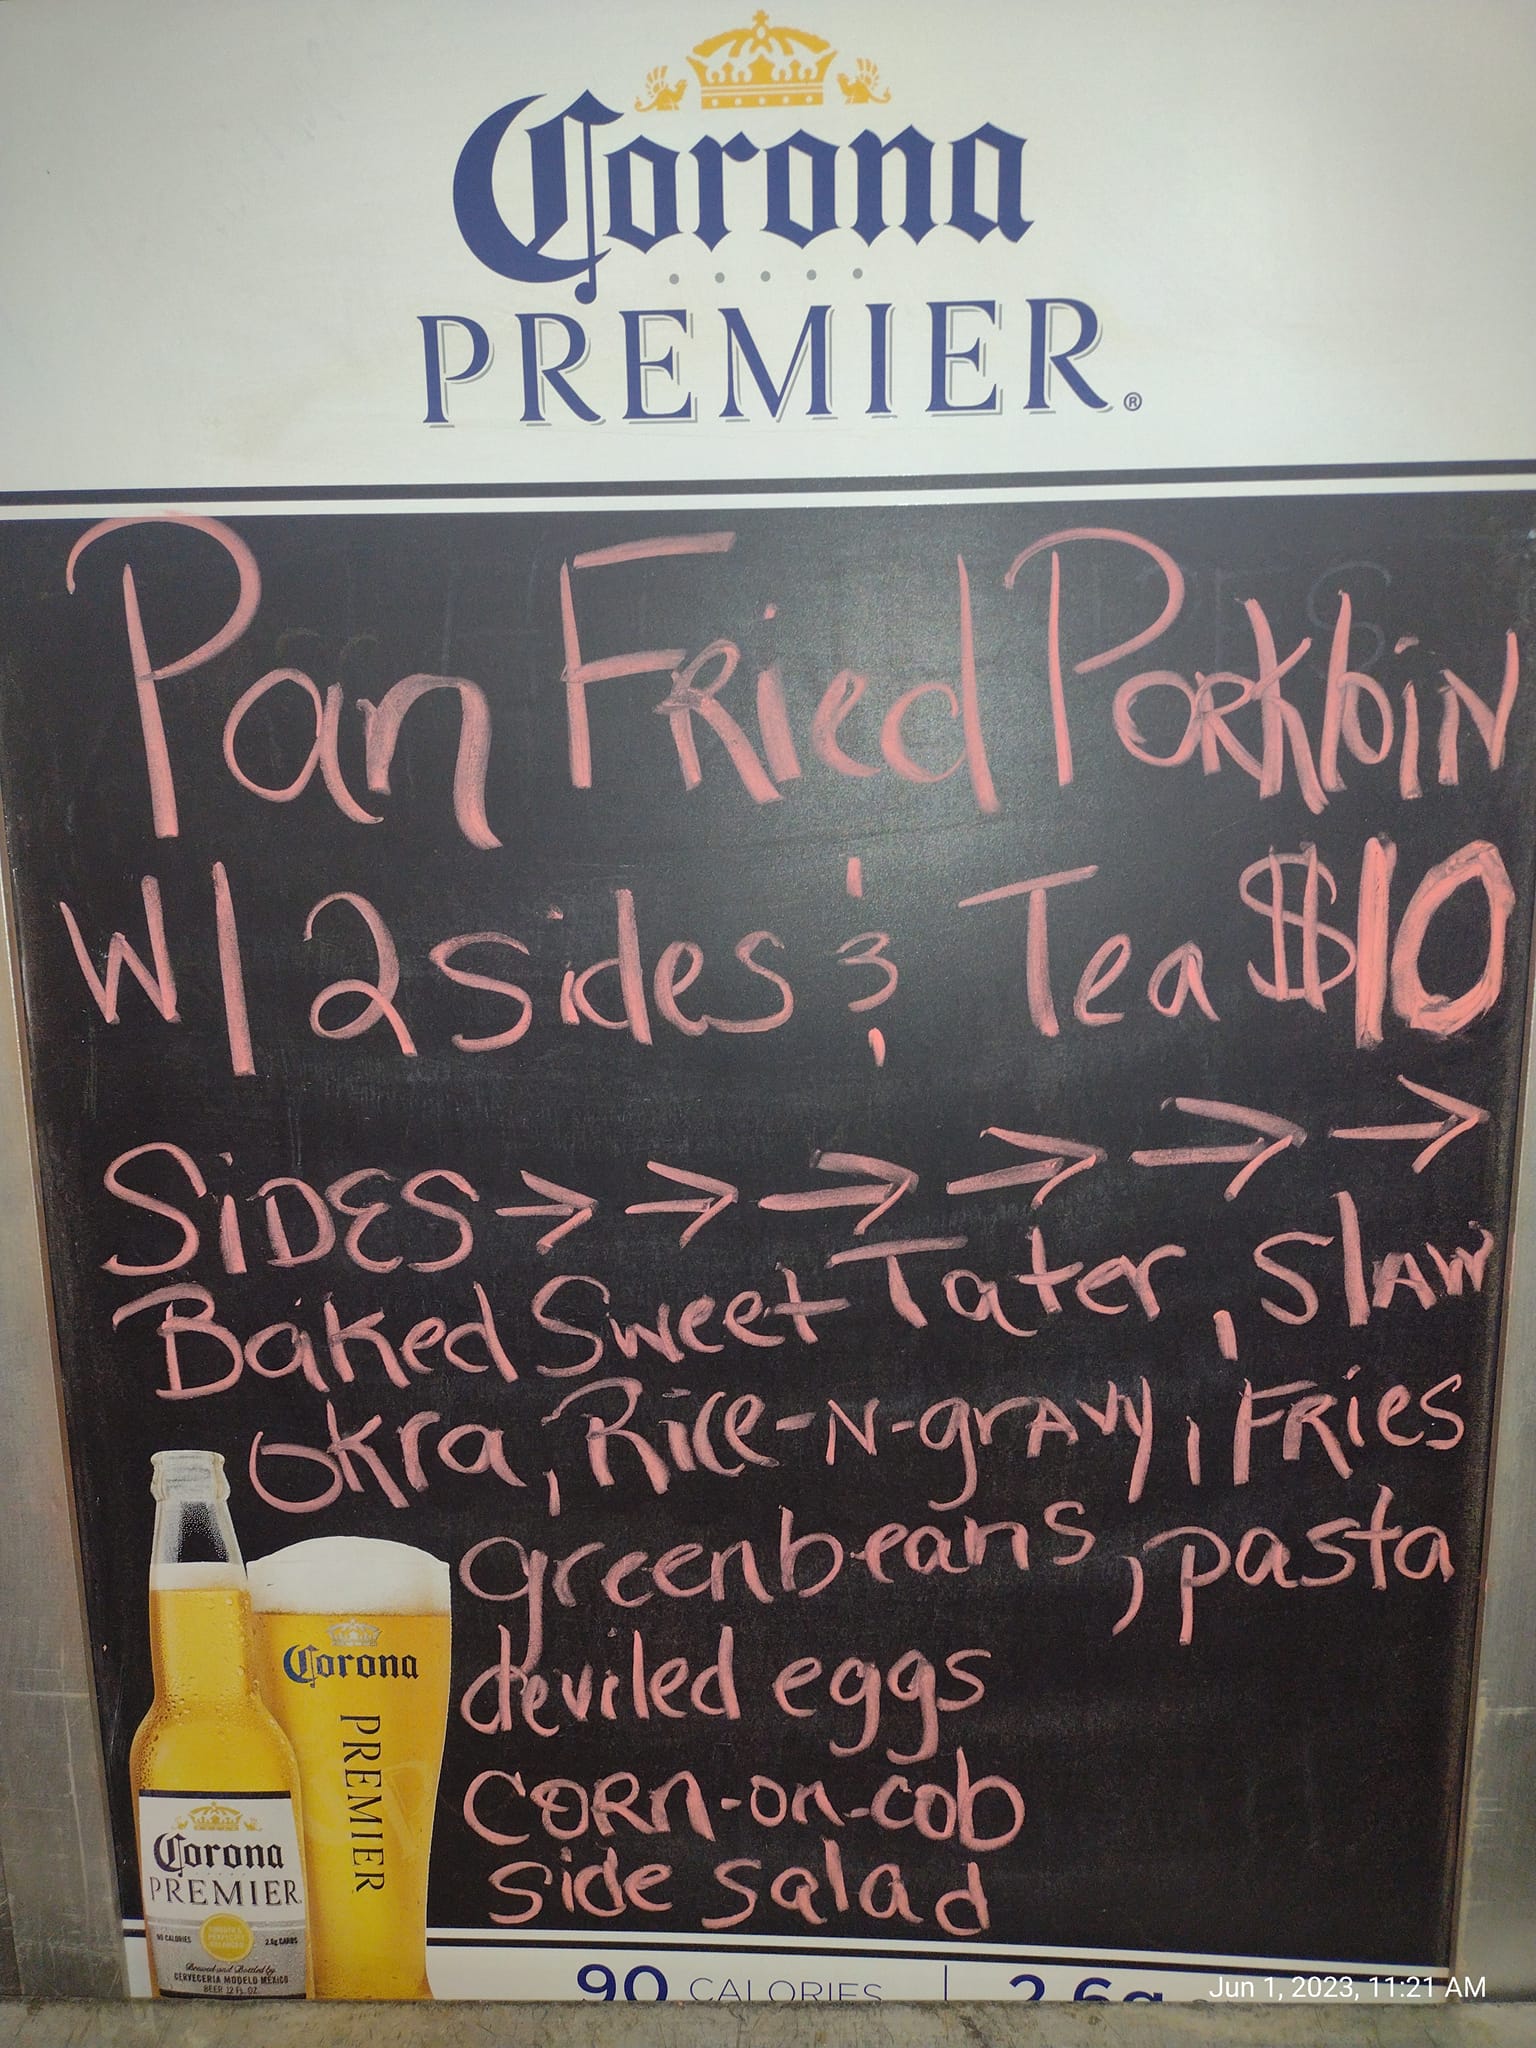 Corona
PREMIER®
Pan Fried Porkloin
W/ 2 sides & Tea $10
SiDES → → → → → →
Baked Sweet Tater, SlAW
Okra, Rice-N-grAvy, FRies
greenbeans, pasta
deviled eggs
CORn-on-cob
side salad
Corona
PREMIER
Corona
PREMIER
90 CALORIES
2.6g CARBS
Brewed and Bottled by
CERVECERIA MODELO MÉXICO
BEER 12 FL. OZ.
90 CALORIES | 2.6g
Jun 1, 2023, 11:21 AM